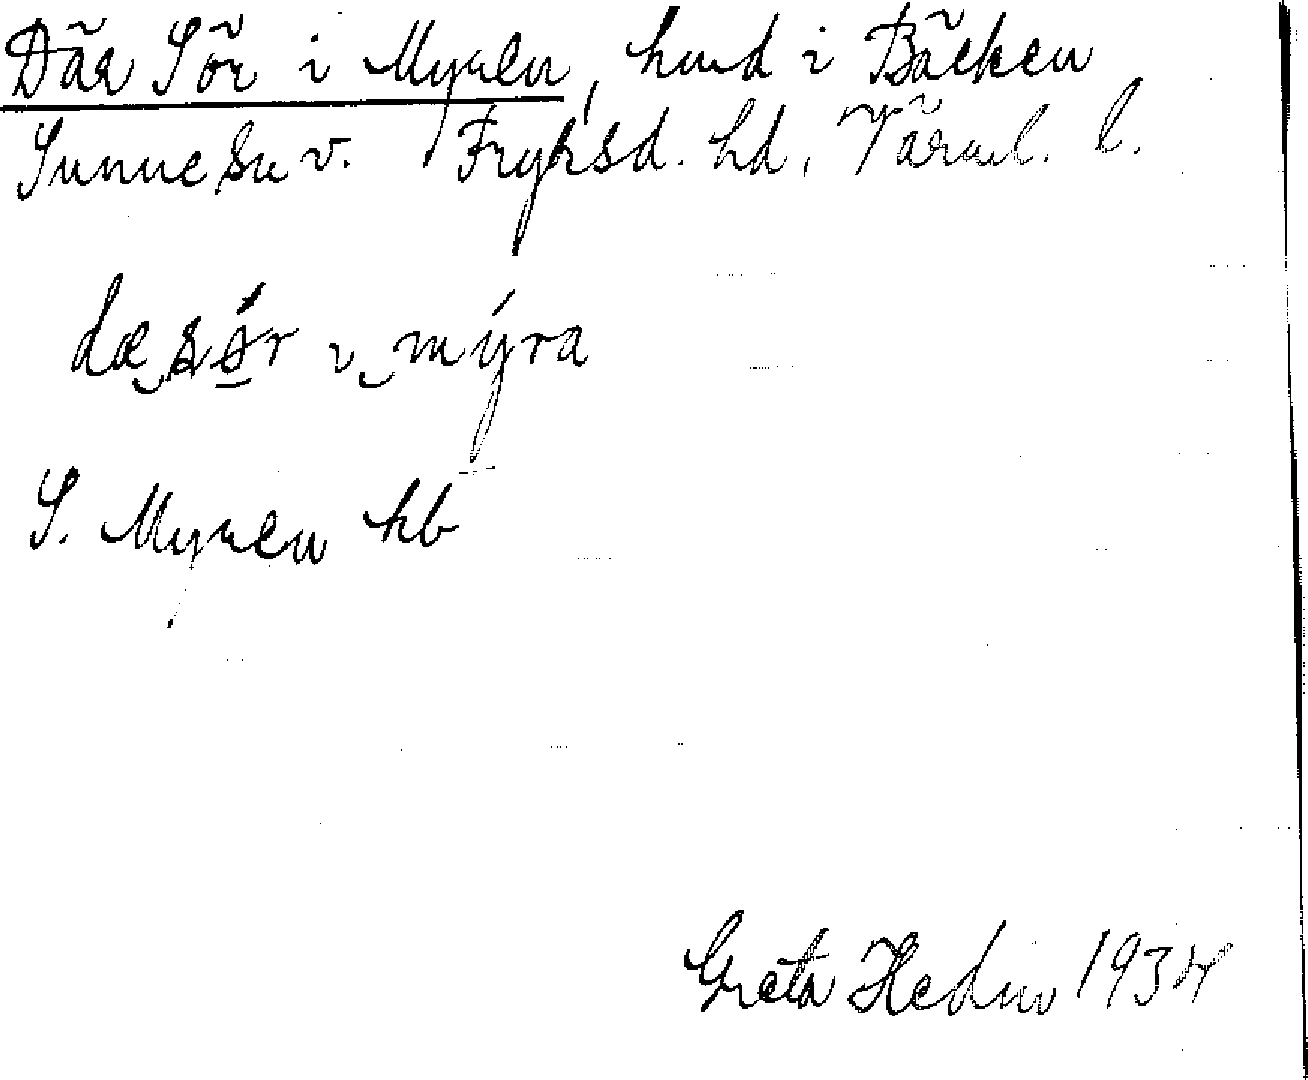 Där Sör i Myren, hmd i Bäcken
Sunne sn v. Fryksd. hd, Värml. l.
dæ‿sǿ̱r ɩ‿mýra
S. Myren hb
Greta Hedin 1934